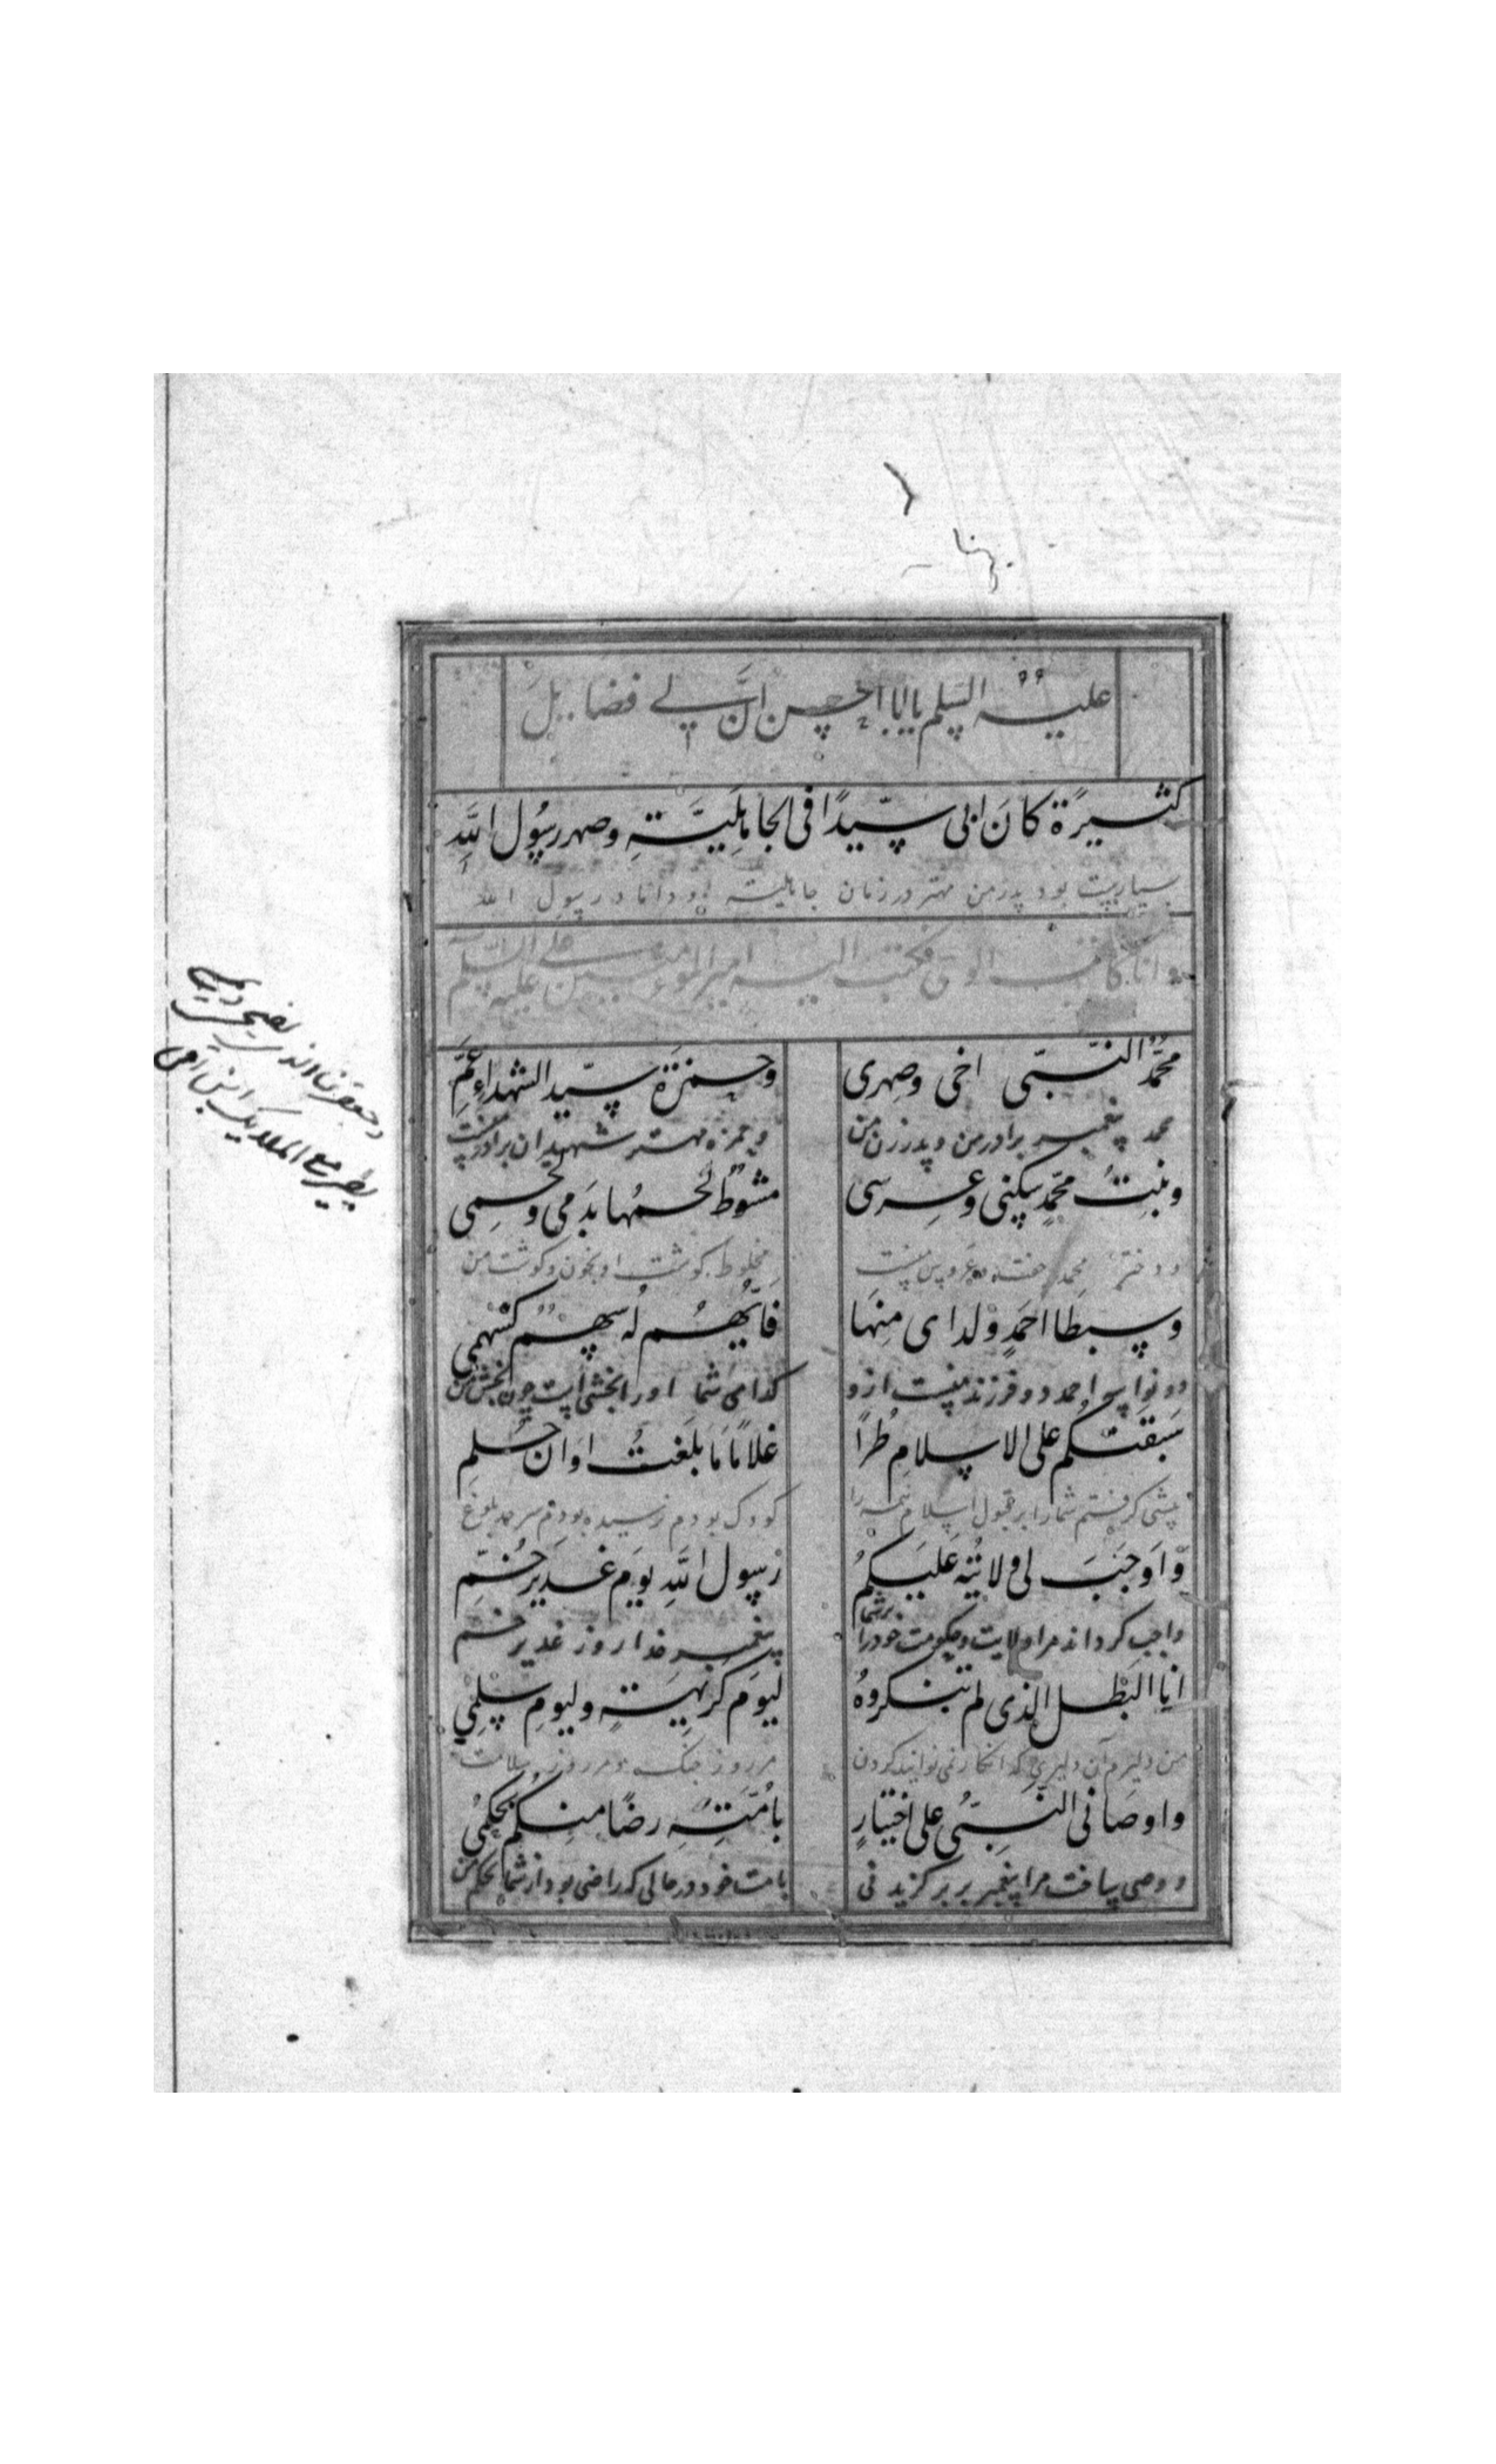 عليه السلم يا ابا الحسن ان لي فضايل
كثيرة كان ابي سيدا في الجاهلية وصهر رسول الله
بسيارست بود پدر من مهتر در زمان جاهليت و داماد رسول الله
وانا كاتب الوحي فكتب اليه امير المومنين علي عليه السلم
محمد النبي اخي وصهري
وحمزة سيد الشهداء عمي
محمد پيغمبر برادر من و پدر زن من
و حمزه مهتر شهيدان برادر پدر منست
وبنت محمد سكني وعرسي
مشوط لحمها بدمي ولحمي
و دختر محمد خفت و عروس منست
مخلوط گوشت او بخون و گوشت من
وسبطا احمد ولداي منها
فايهم له سهم كسهمي
دو نواسه احمد دو فرزند منست ازو
كدامي شما او را بخشي است چون بخش من
سبقتكم على الاسلام طرا
غلاما ما بلغت اوان حلم
پيشي گرفتم شما را بر قبول اسلام همه را
كودك بودم نرسيده بودم سرحد بلوغ
واوجب لي ولايته عليكم
رسول الله يوم غدير خم
واجب گرداند مرا ولايت و حكومت خود را بر شما
پيغمبر خدا روز غدير خم
انا البطل الذي لم تنكروه
ليوم كريهة وليوم سلمي
من دليرم آن دليري كه انكار نمي توانيد كردن
مر روز جنگ و مر روز سلامت
واوصاني النبي على اختيار
بامته رضا منكم بحكمي
و وصي ساخت مرا پيغمبر بر برگزيدني
بامت خود در حالي كه راضي بود از شما بحكم من
يضحي ويمسي
يطير مع الملايك ابن امي